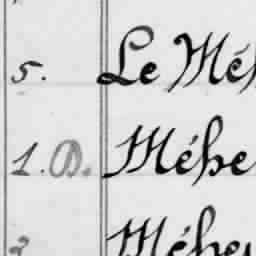 5. Le Mé
1. D. Méhe
2 Méhe